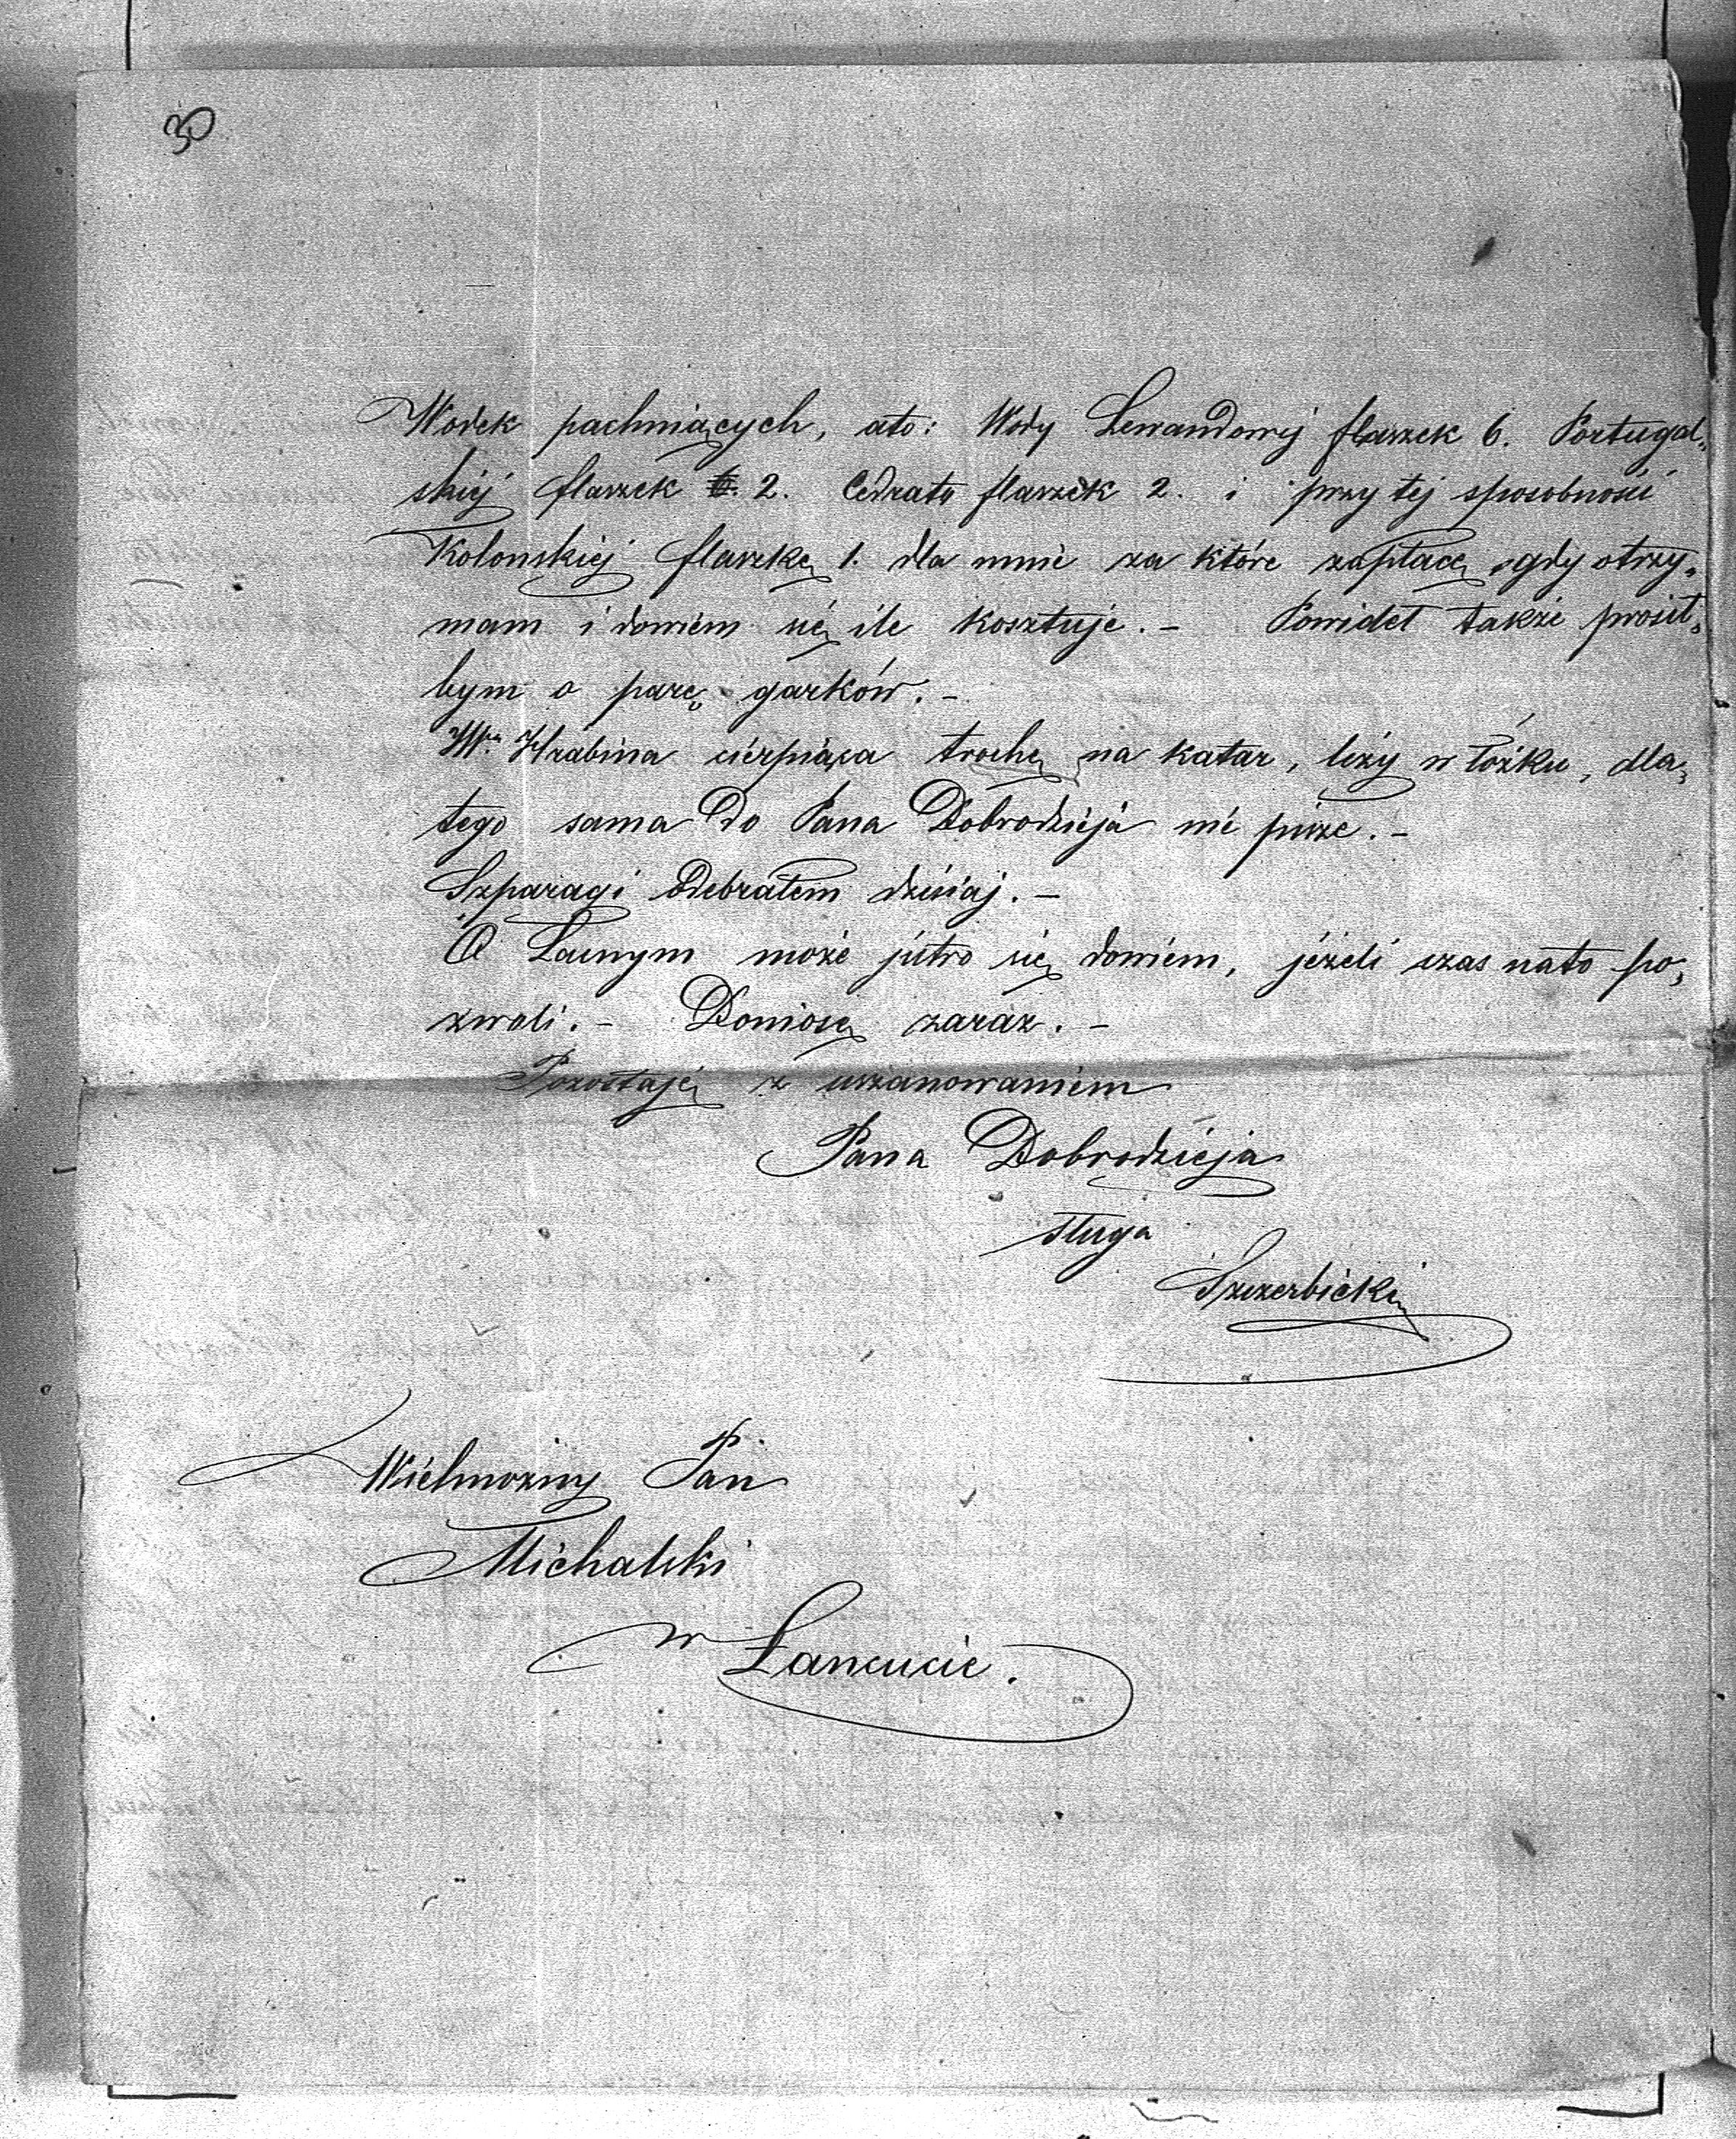 30
Wodek pachniących, ato: Wody Lewandowej flaszek 6. Portugal„
skiej flaszek 6. 2. Cedrato flaszek 2. i przy tej sposobności
Kolonskiej flaszkę 1. dla mnie za które zapłacę, gdy otrzy„
mam i dowiem się ile kosztuje. – Powideł także prosił„
bym o parę garków. –
Hrabina cierpiąca trochę na katar, leży w łóżku, dla„
tego sama do Pana Dobrodzieja nie pisze. –
Szparagi odebrałem dzisiaj. –
O może jutro się dowiem, jeżeli czas nato po„
zwoli. – Doniosę zaraz. –
Pozostaję z uszanowaniem
Pana Dobrodzieja
sługa
Szczerbicki
Wielmożny Pan
Michalski
w Łancucie.